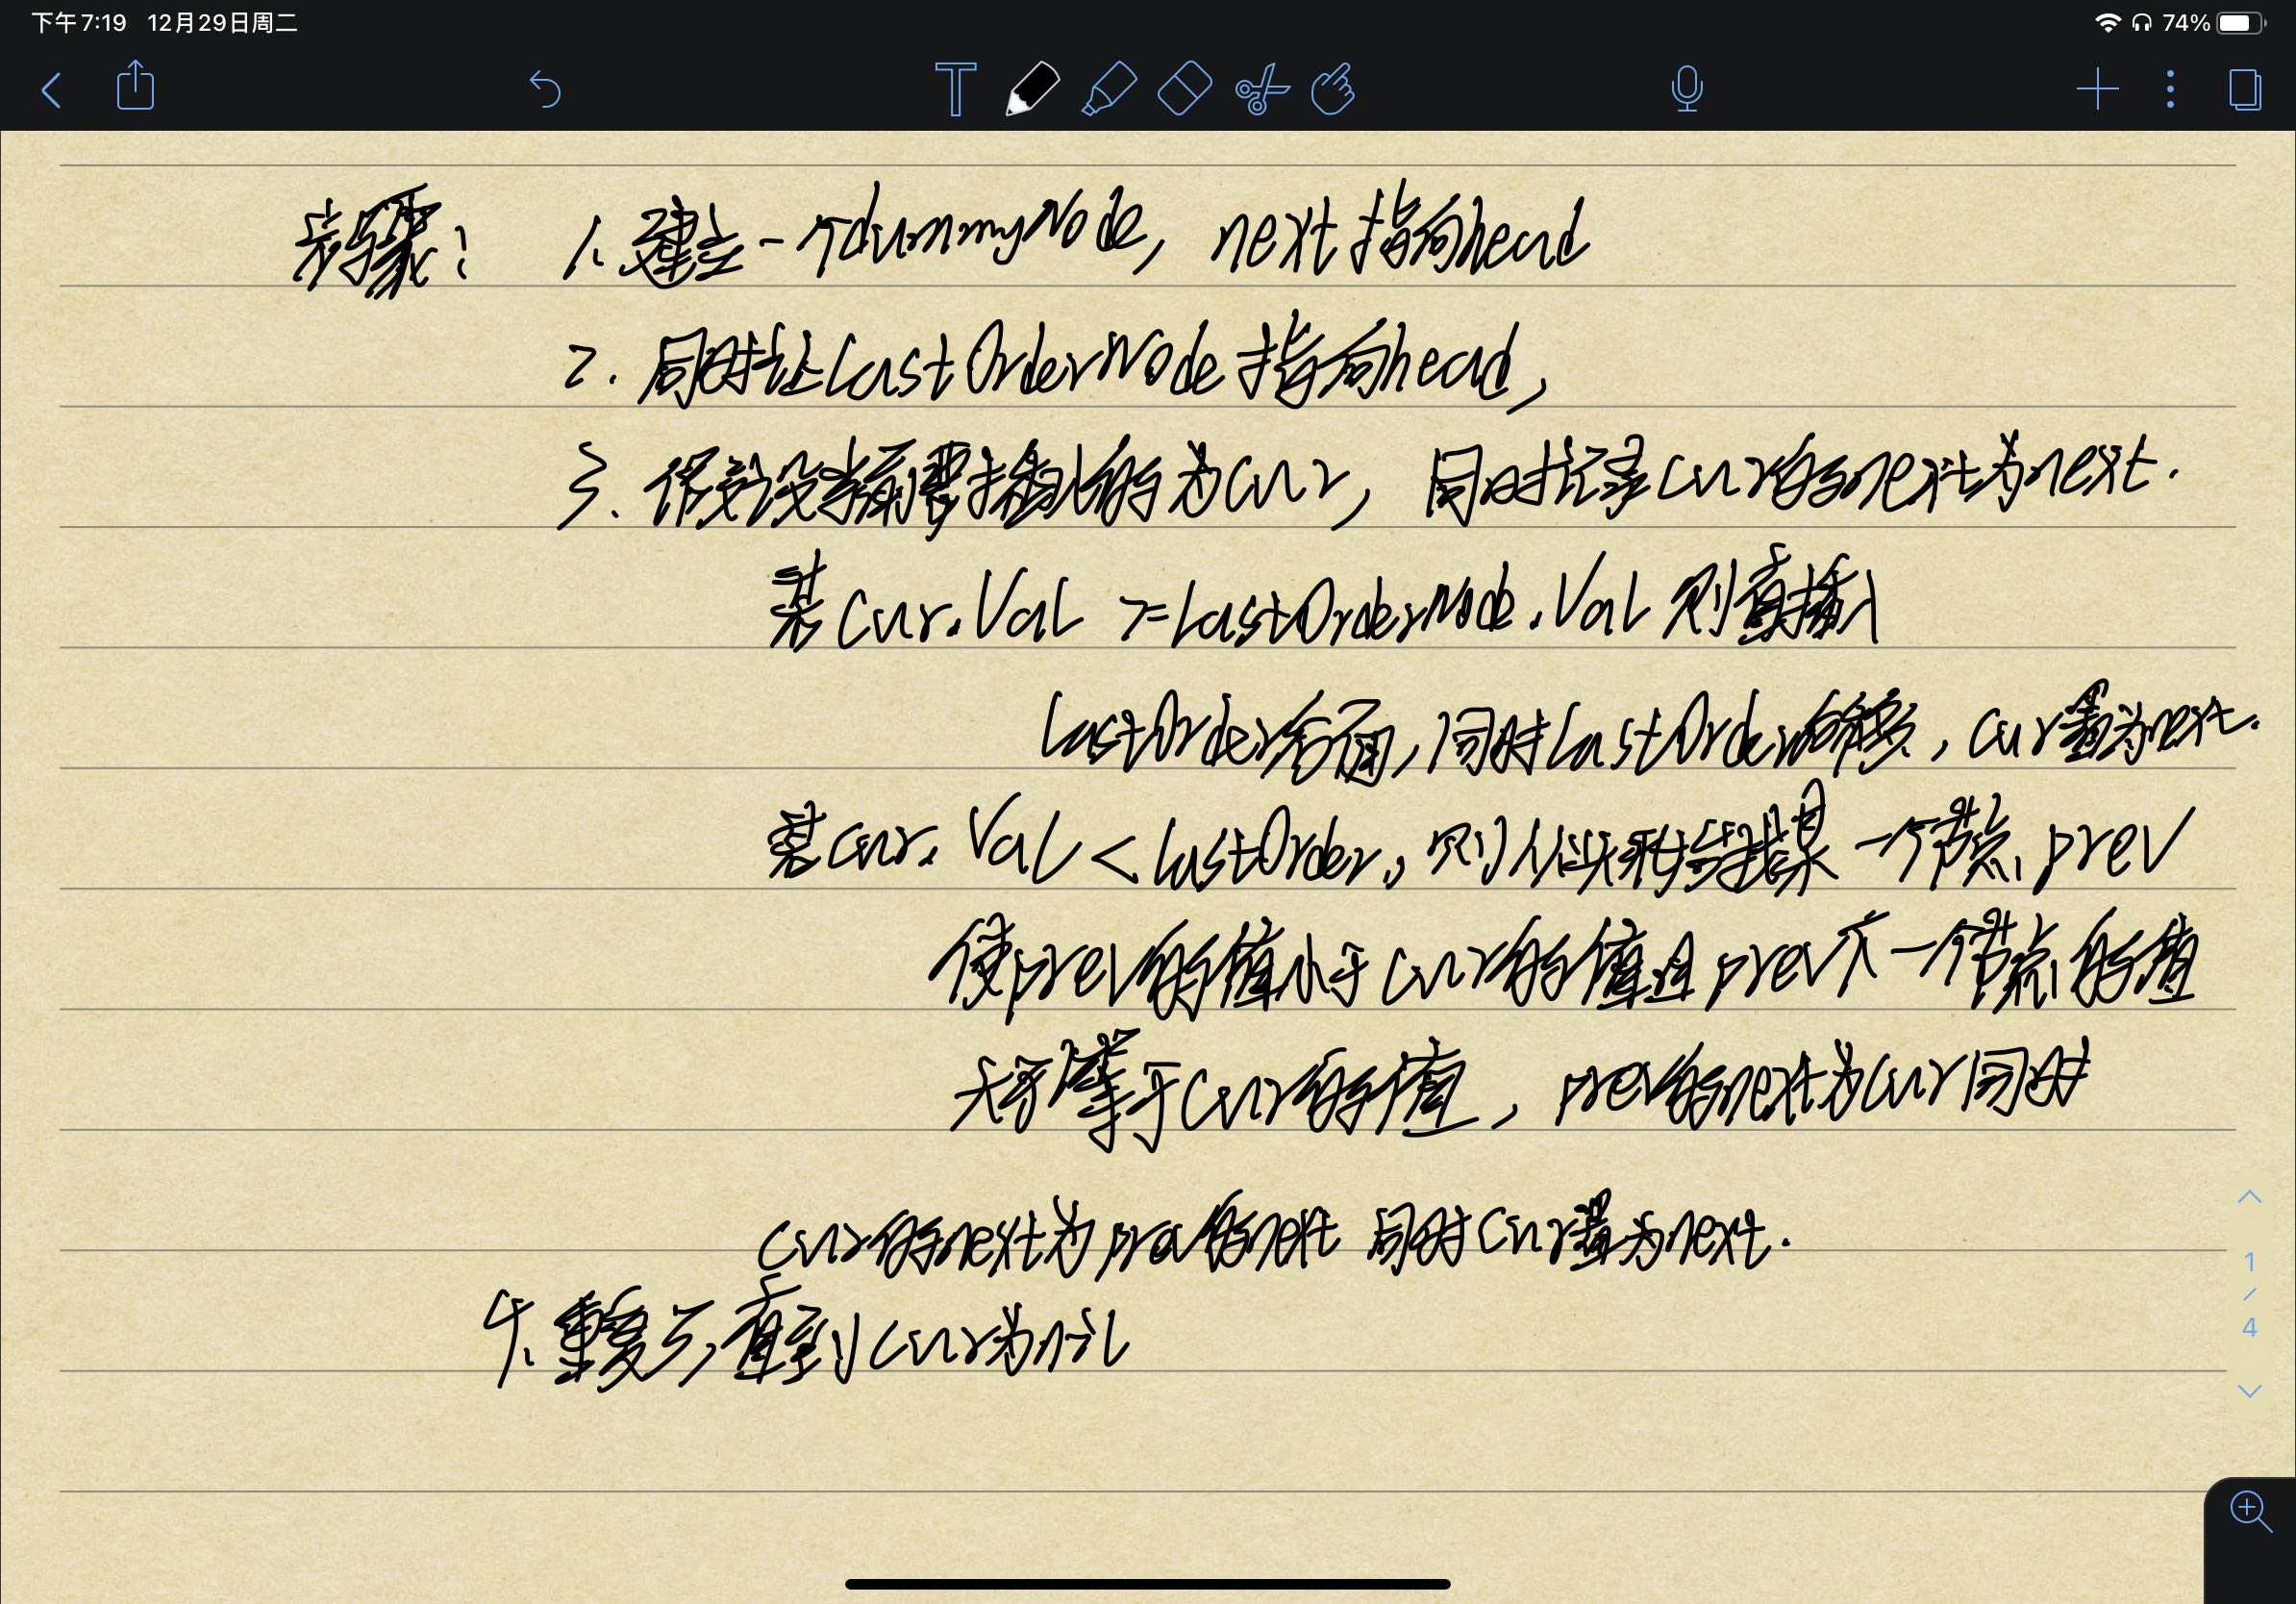 下午7:19 12月29日周二
74%
步骤: 1. 建立一个dummyNode, next指向head
2. 同时让lastOrderNode指向head,
3. 假设当前需要插入的为cur, 同时记录cur的next为next.
若cur.Val >= lastOrderNode.Val 则直接插入
lastOrder后面, 同时lastOrder后移, cur置为next.
若cur.Val < lastOrder, 则从头开始找某一个节点prev
使prev的值小于cur的值且prev下一个节点的值
大于等于cur的值, prev的next为cur同时
cur的next为prev的next 同时cur置为next.
4. 重复3, 直到cur为nil
1
/
4